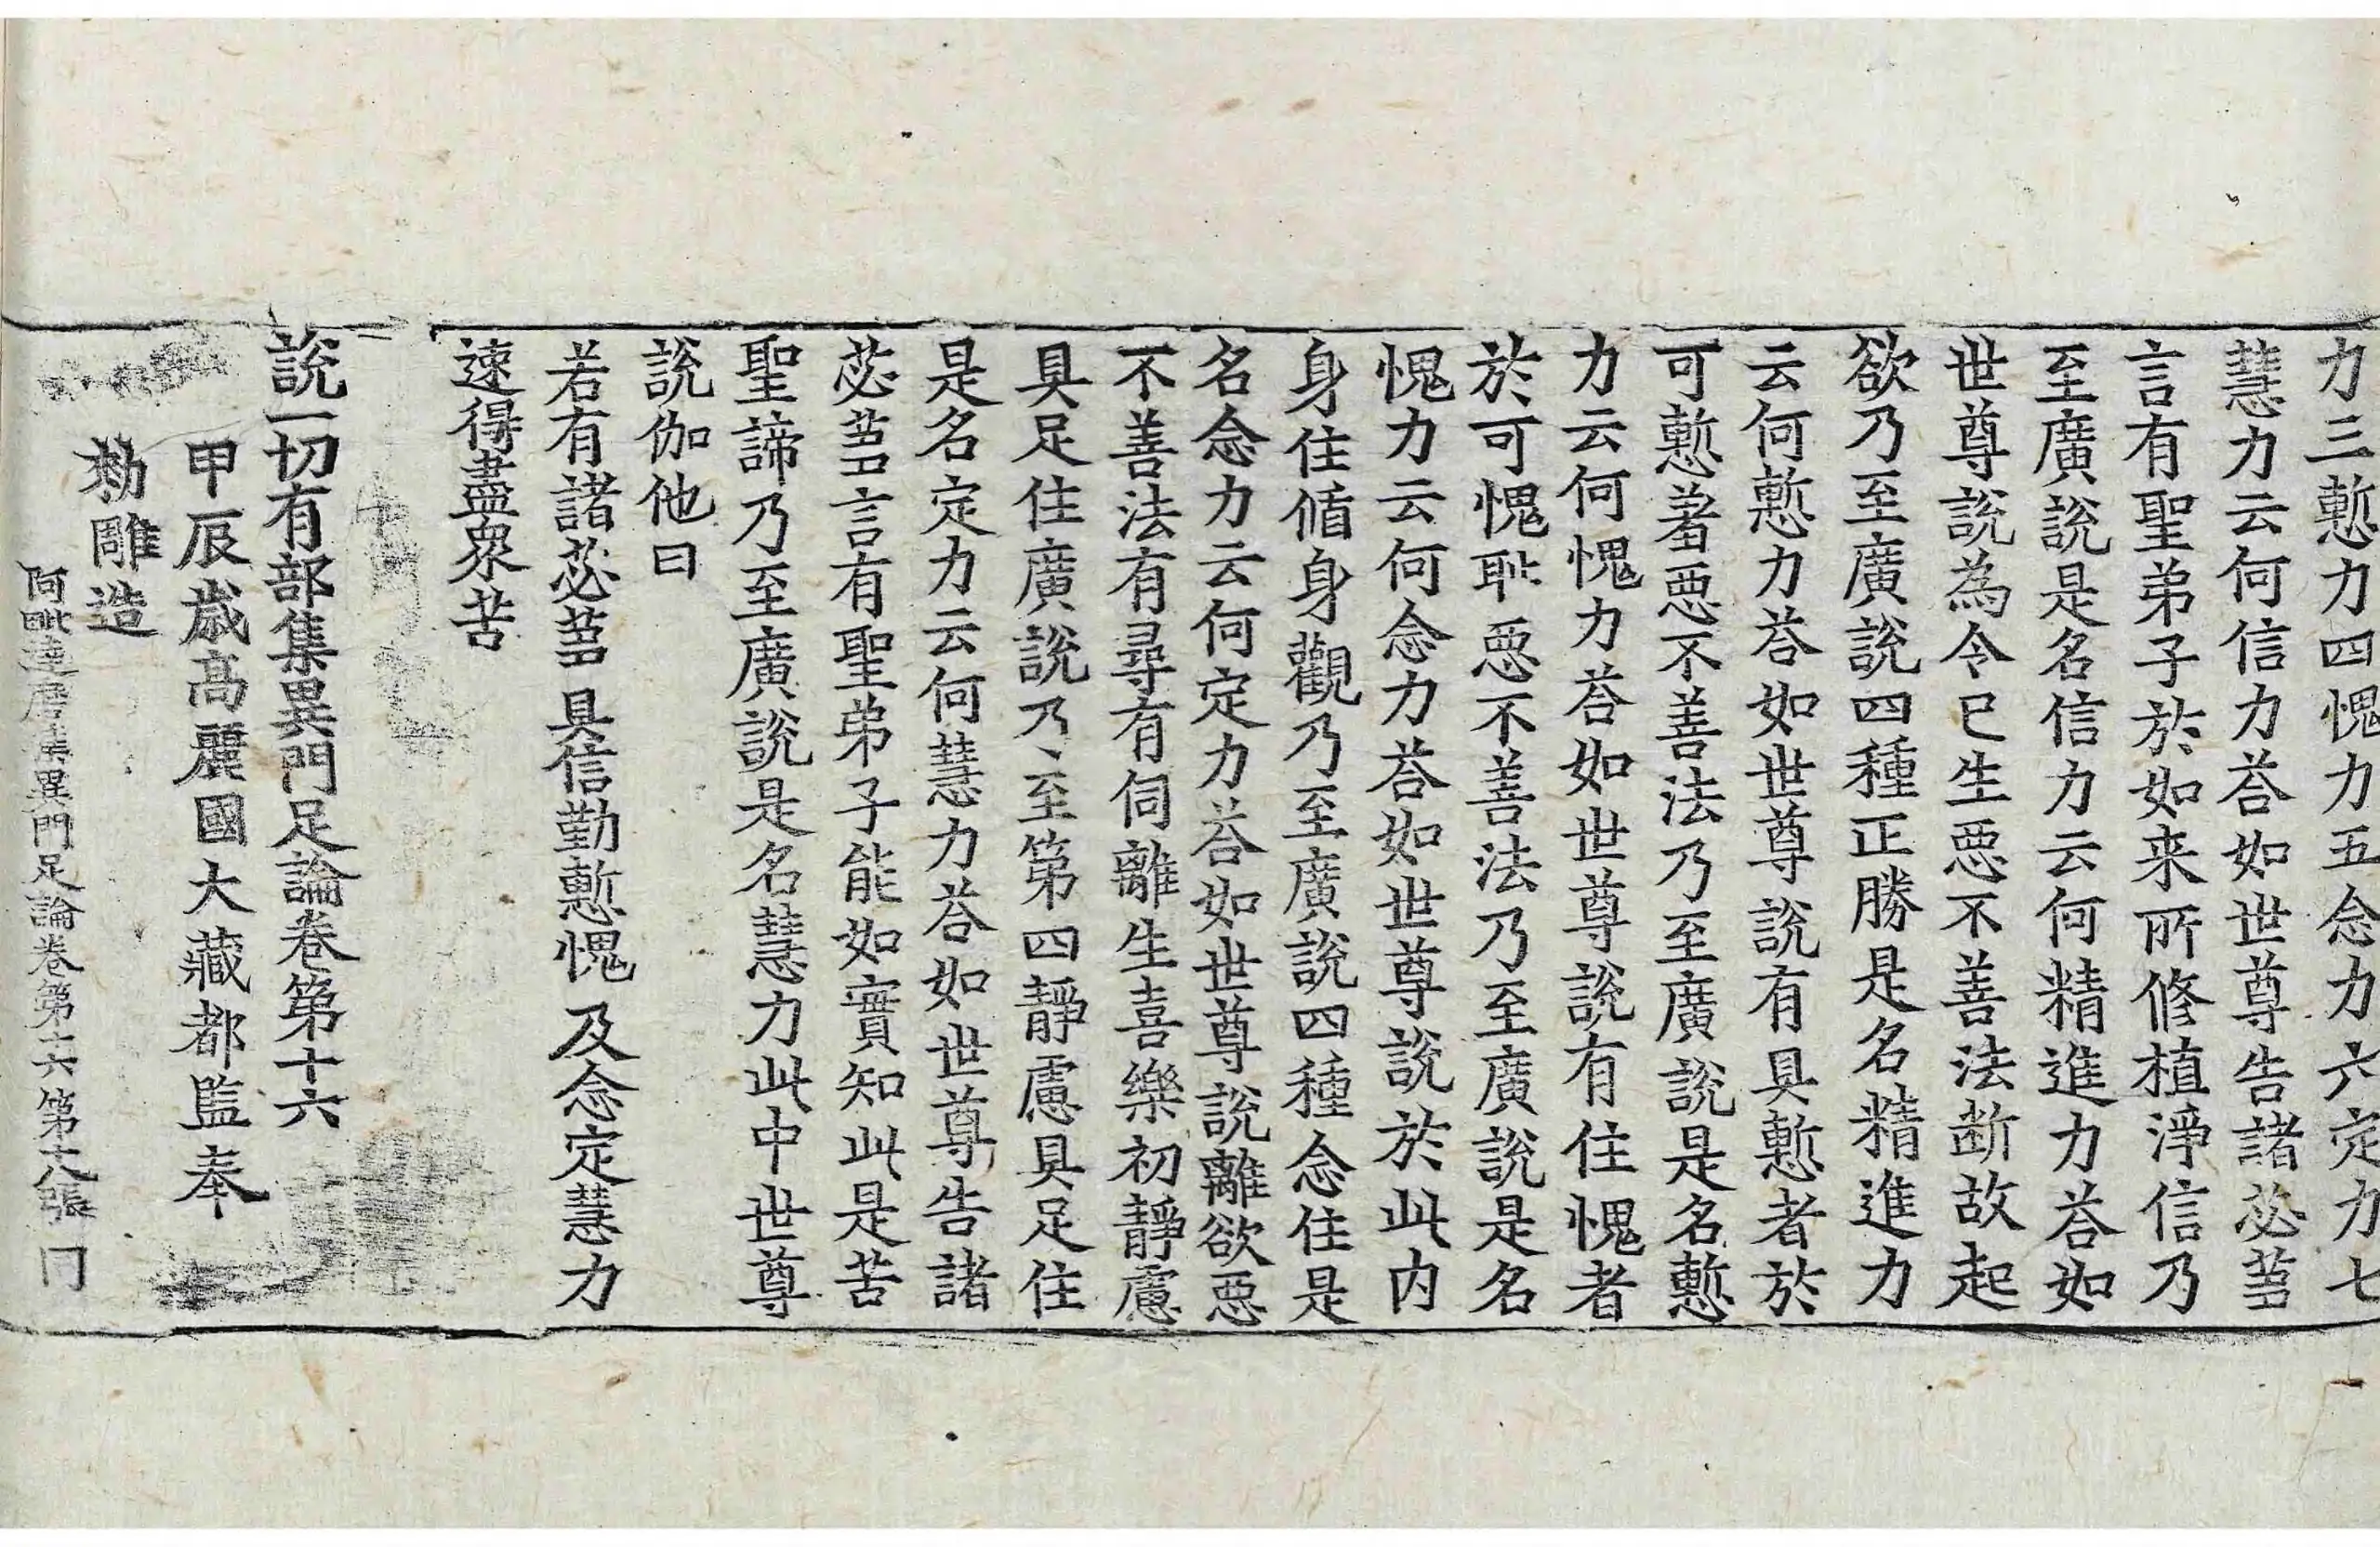 力三慙力四愧力五念力六定力七
慧力云何信力荅如世尊告諸苾芻
言有聖弟子於如来所修植淨信乃
至廣說是名信力云何精進力荅如
世尊說為令已生惡不善法断故起
欲乃至廣說四種正勝是名精進力
云何慙力荅如世尊說有具慙者於
可慙羞惡不善法乃至廣說是名慙
力云何愧力荅如世尊說有住愧者
於可愧耻惡不善法乃至廣說是名
愧力云何念力荅如世尊說於此内
身住循身觀乃至廣說四種念住是
名念力云何定力荅如世尊說離欲惡
不善法有尋有伺離生喜樂初靜慮
具足住廣說乃至第四靜慮具足住
是名定力云何慧力荅如世尊告諸
苾芻言有聖弟子能如實知此是苦
聖諦乃至廣說是名慧力此中世尊
說伽他曰
若有諸苾芻 具信勤慙愧 及念定慧力
速得盡衆苦
說一切有部集異門足論卷第十六
甲辰歳高麗國大藏都監奉
勑雕造
阿毗達磨集異門足論卷第十六 第十八張 冂